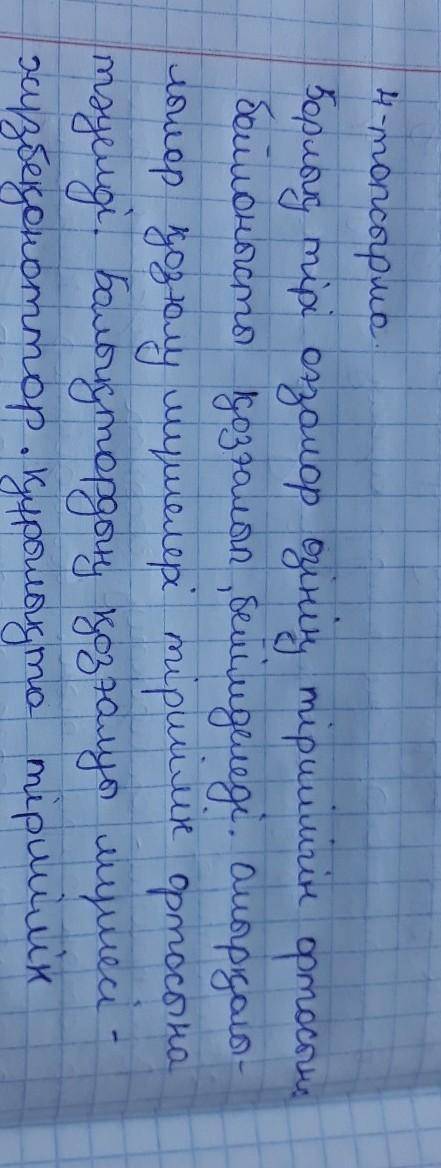 4-тапсырма.
Барлық тірі ағзалар өзінің тіршілігін ортасына
байланысты қозғалып, бейімделеді. Омыртқалы-
лолар қозғалу мүшелері тіршілік ортасына
тәуелді. Балықтардың қозғалу мүшесі -
жүзбеқанаттар. Құрлықта тіршілік